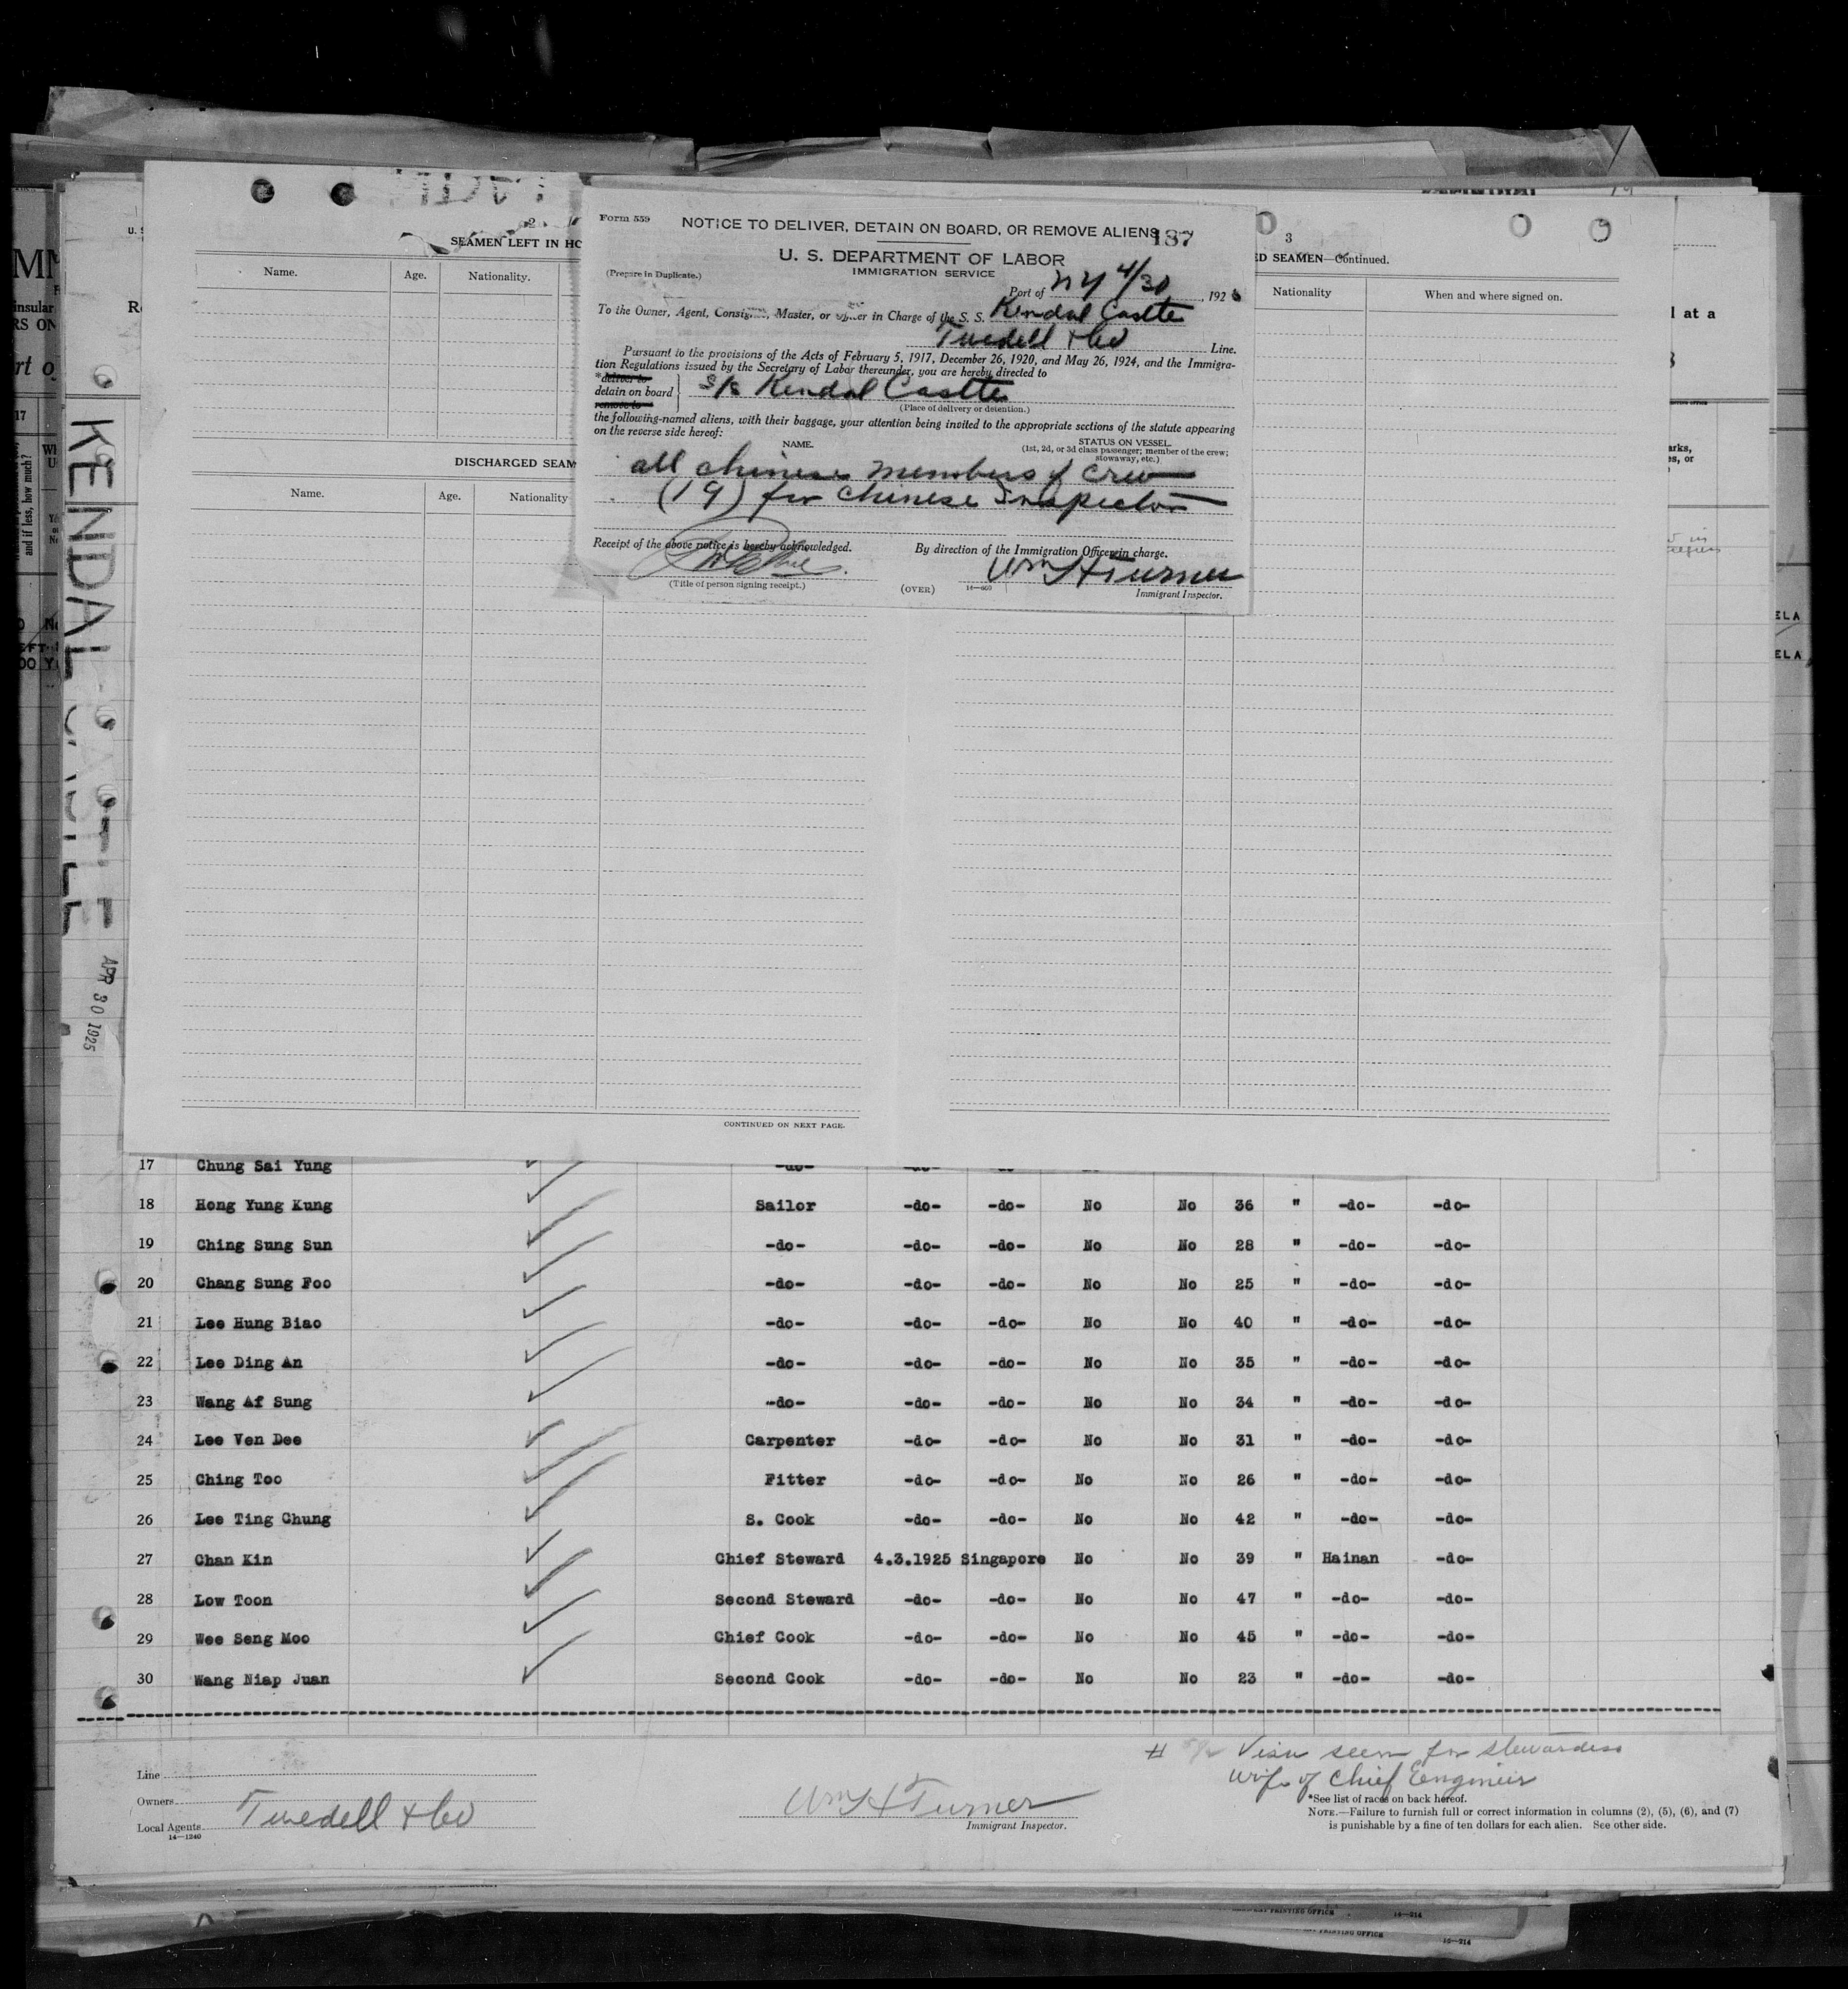 2
SEAMEN LEFT IN HO
Name. Age. Nationality.
DISCHARGED SEAM
Name. Age. Nationality
Form 559
NOTICE TO DELIVER, DETAIN ON BOARD, OR REMOVE ALIENS
187
U. S. DEPARTMENT OF LABOR
IMMIGRATION SERVICE
(Prepare in Duplicate.)
Port of NY 4/30, 192
To the Owner, Agent, Consignee, Master, or Officer in Charge of the S. S. Kendal Castle
Twedell & Co Line.
Pursuant to the provisions of the Acts of February 5, 1917, December 26, 1920, and May 26, 1924, and the Immigra-
tion Regulations issued by the Secretary of Labor thereunder, you are hereby directed to
*deliver to
detain on board S/S Kendal Castle
remove to
(Place of delivery or detention.)
the following-named aliens, with their baggage, your attention being invited to the appropriate sections of the statute appearing
on the reverse side hereof:
NAME. STATUS ON VESSEL.
(1st, 2d, or 3d class passenger; member of the crew;
stowaway, etc.)
all chinese members of crew
(19) for chinese Inspector
Receipt of the above notice is hereby acknowledged. By direction of the Immigration Officer in charge.
Wm H Turner
(Title of person signing receipt.) (OVER) 14—660 Immigrant Inspector.
3
ED SEAMEN—Continued.
Nationality When and where signed on.
l at a
KENDAL CASTLE
APR 30 1925
CONTINUED ON NEXT PAGE.
17 Chung Sai Yung -do- -do- -do-
18 Hong Yung Kung Sailor -do- -do- No No 36 " -do- -do-
19 Ching Sung Sun -do- -do- -do- No No 28 " -do- -do-
20 Chang Sung Foo -do- -do- -do- No No 25 " -do- -do-
21 Lee Hung Biao -do- -do- -do- No No 40 " -do- -do-
22 Lee Ding An -do- -do- -do- No No 35 " -do- -do-
23 Wang Af Sung -do- -do- -do- No No 34 " -do- -do-
24 Lee Ven Dee Carpenter -do- -do- No No 31 " -do- -do-
25 Ching Too Fitter -do- -do- No No 26 " -do- -do-
26 Lee Ting Chung S. Cook -do- -do- No No 42 " -do- -do-
27 Chan Kin Chief Steward 4.3.1925 Singapore No No 39 " Hainan -do-
28 Low Toon Second Steward -do- -do- No No 47 " -do- -do-
29 Wee Seng Moo Chief Cook -do- -do- No No 45 " -do- -do-
30 Wang Niap Juan Second Cook -do- -do- No No 23 " -do- -do-
# Visa seen for stewardess
wife of Chief Engineer
Line
Owners
Local Agents Twedell & Co
14—1240
Wm H Turner
Immigrant Inspector.
*See list of races on back hereof.
NOTE.—Failure to furnish full or correct information in columns (2), (5), (6), and (7)
is punishable by a fine of ten dollars for each alien. See other side.
PRINTING OFFICE 14—214
PRINTING OFFICE 14—214